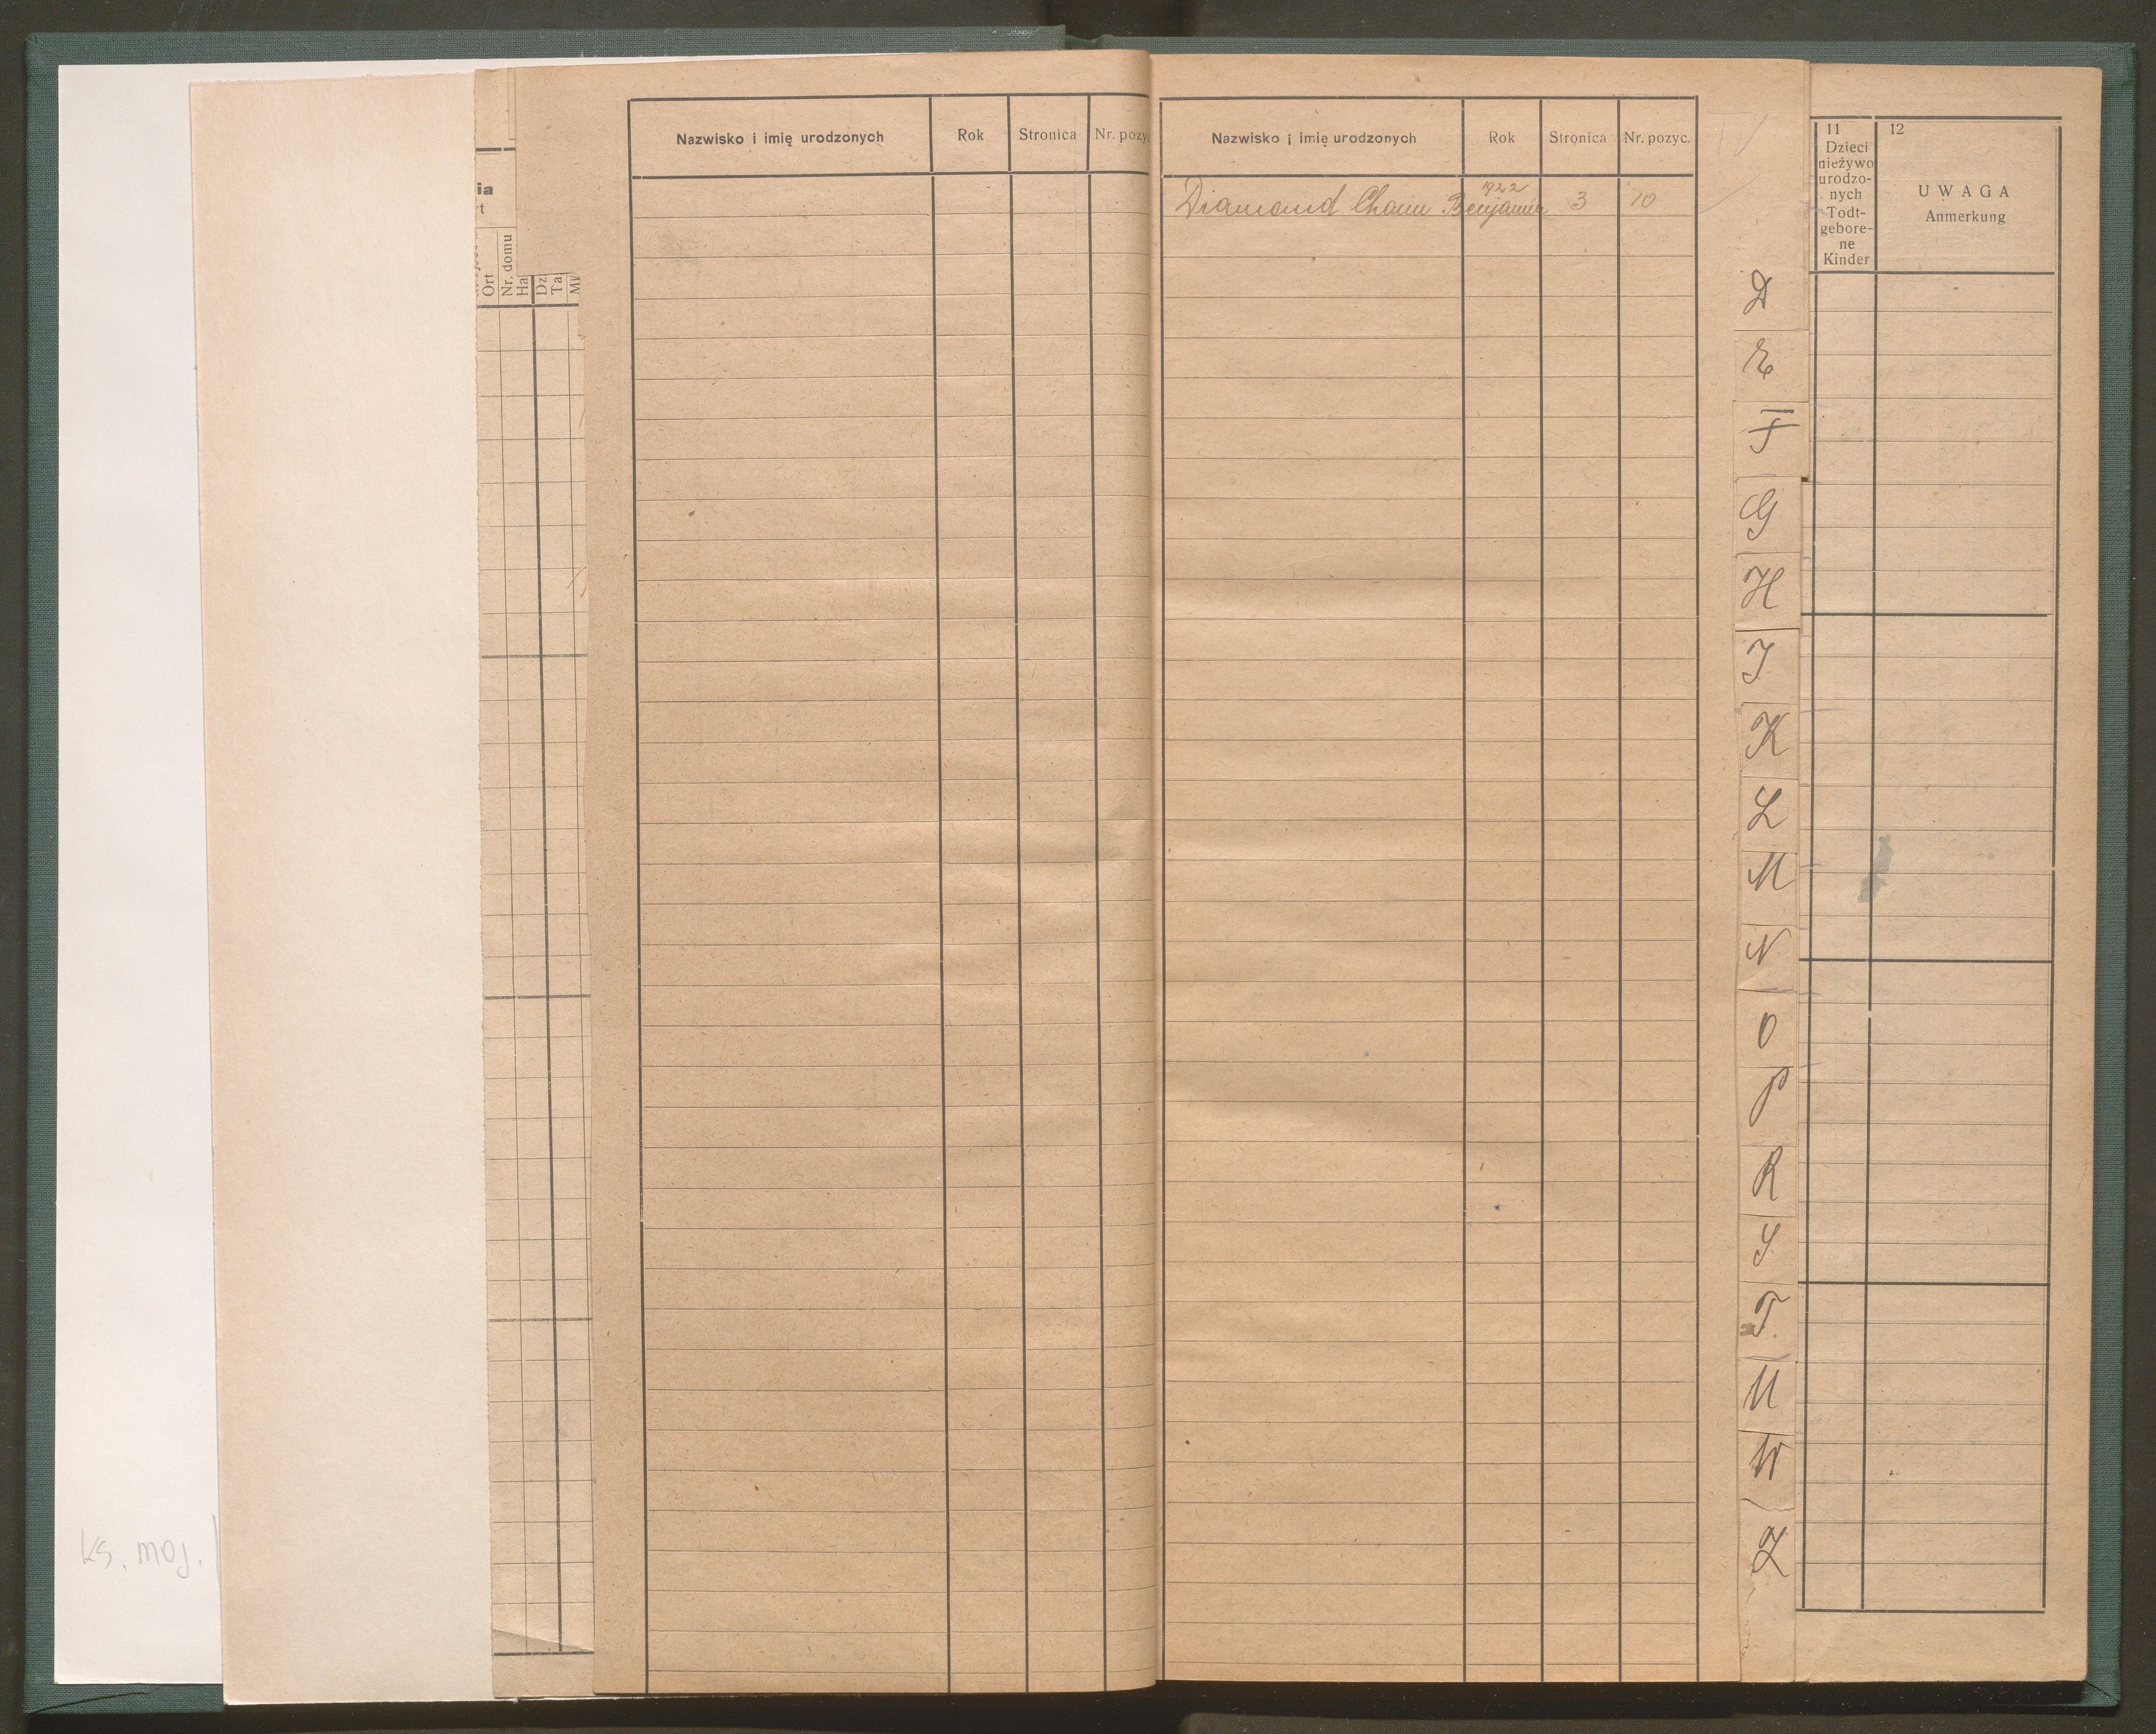 ia
t
Ort
Nr. domu
Ha
Dz
Ta
Mi
Nazwisko i imię urodzonych Rok Stronica Nr. pozyc
Nazwisko i imię urodzonych Rok Stronica Nr. pozyc.
1922
Diamand Chaim Benjamin 3 10
D
E
F
G
H
I
K
L
M
N
O
P
R
S
T.
U
W
Z
11
Dzieci
nieżywo
urodzo-
nych
Todt-
gebore-
ne
Kinder
12
UWAGA
Anmerkung
ks. moj.